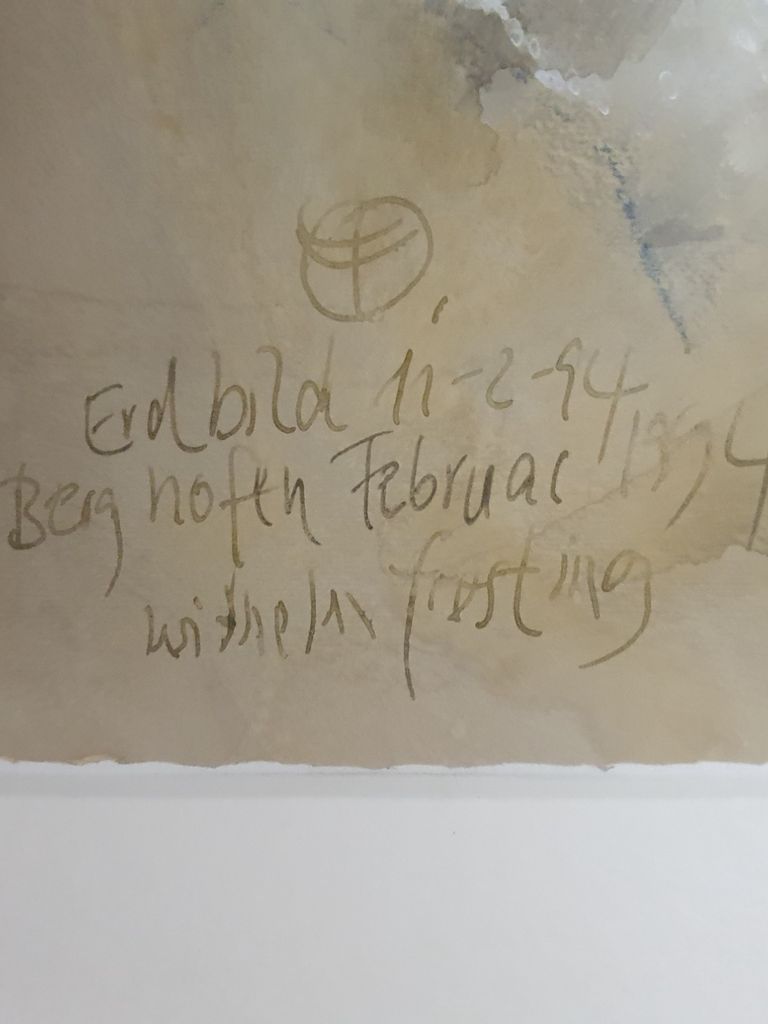 Erdbild 11-2-94
Berghofen Februar 1994
Wilhelm Frosting